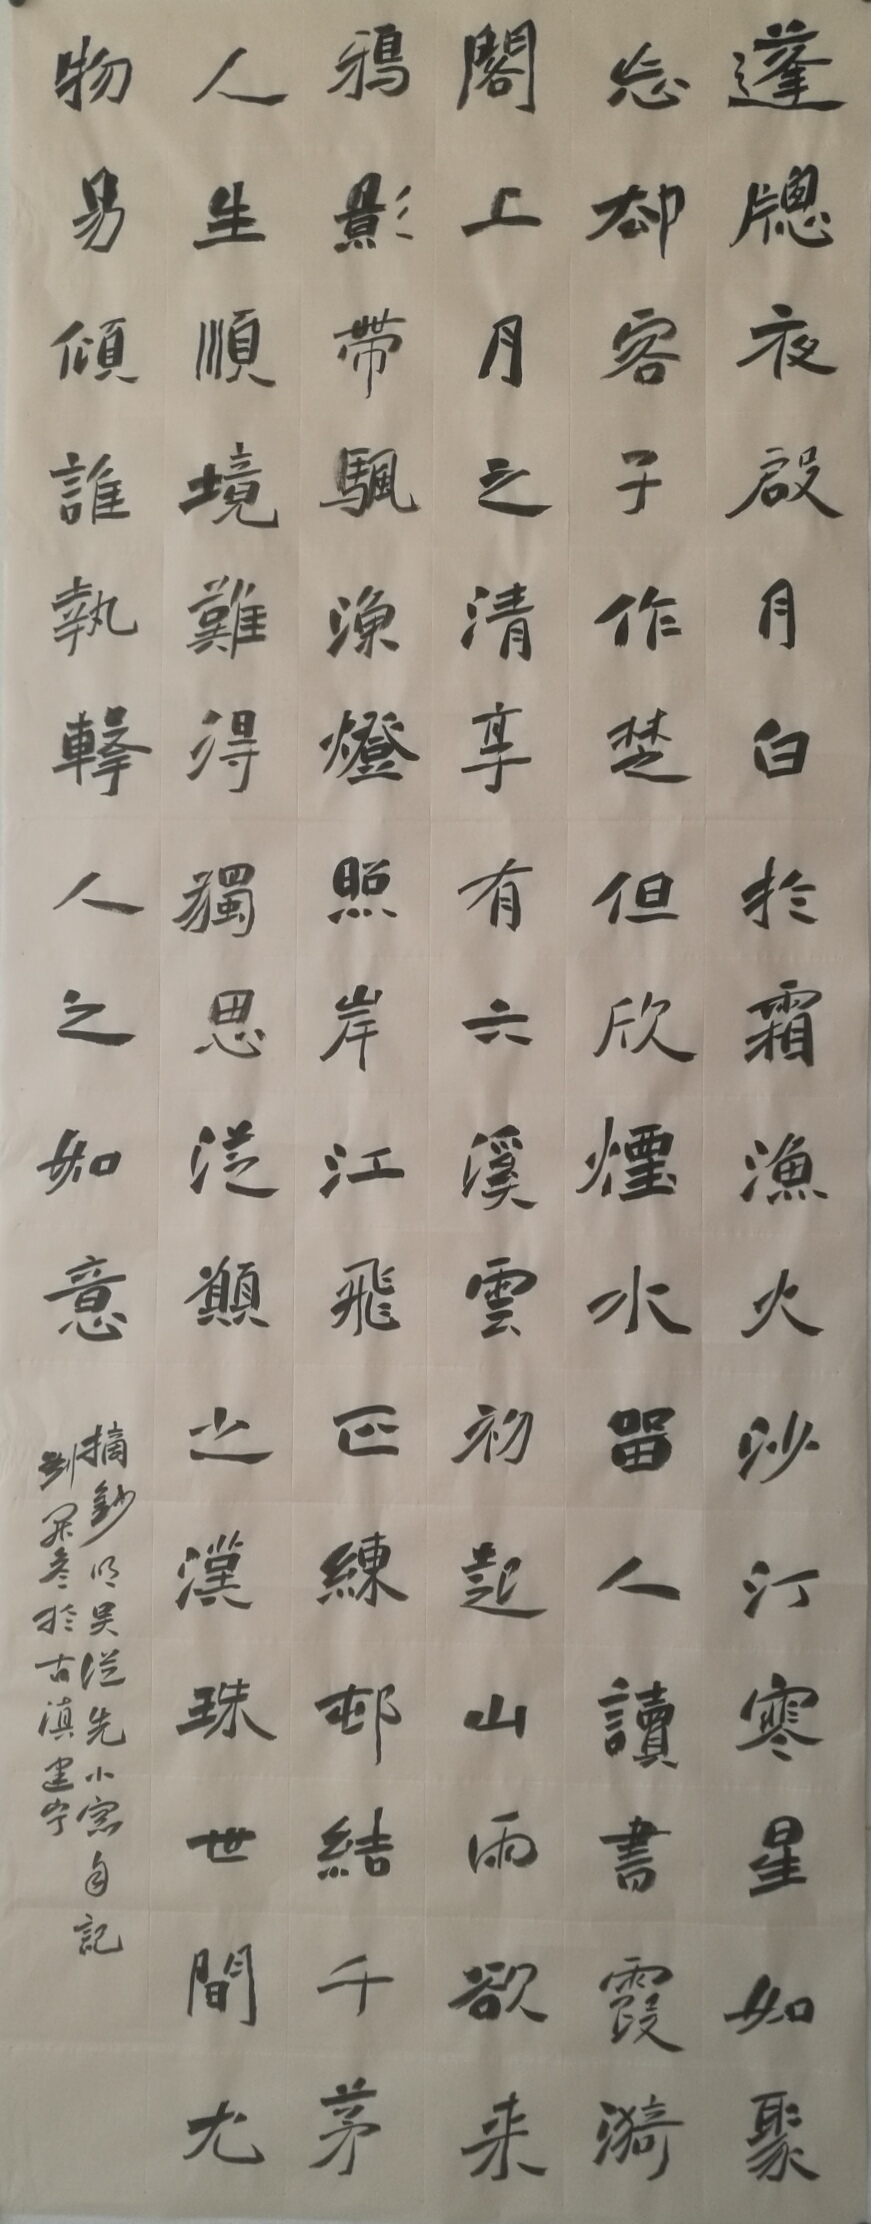 蓬牕夜啟月白於霜漁火沙汀寒星如聚
忘却客子作楚但欣煙水留人讀書霞漪
閣上月之清享有六溪雲初起山雨欲来
鴉影帶颿漁燈照岸江飛匹練邨結千茅
人生順境難得獨思從願之漢珠世間尤
物易傾誰執擊人之如意
摘鈔明吴從先小窓自記
於古滇建宁